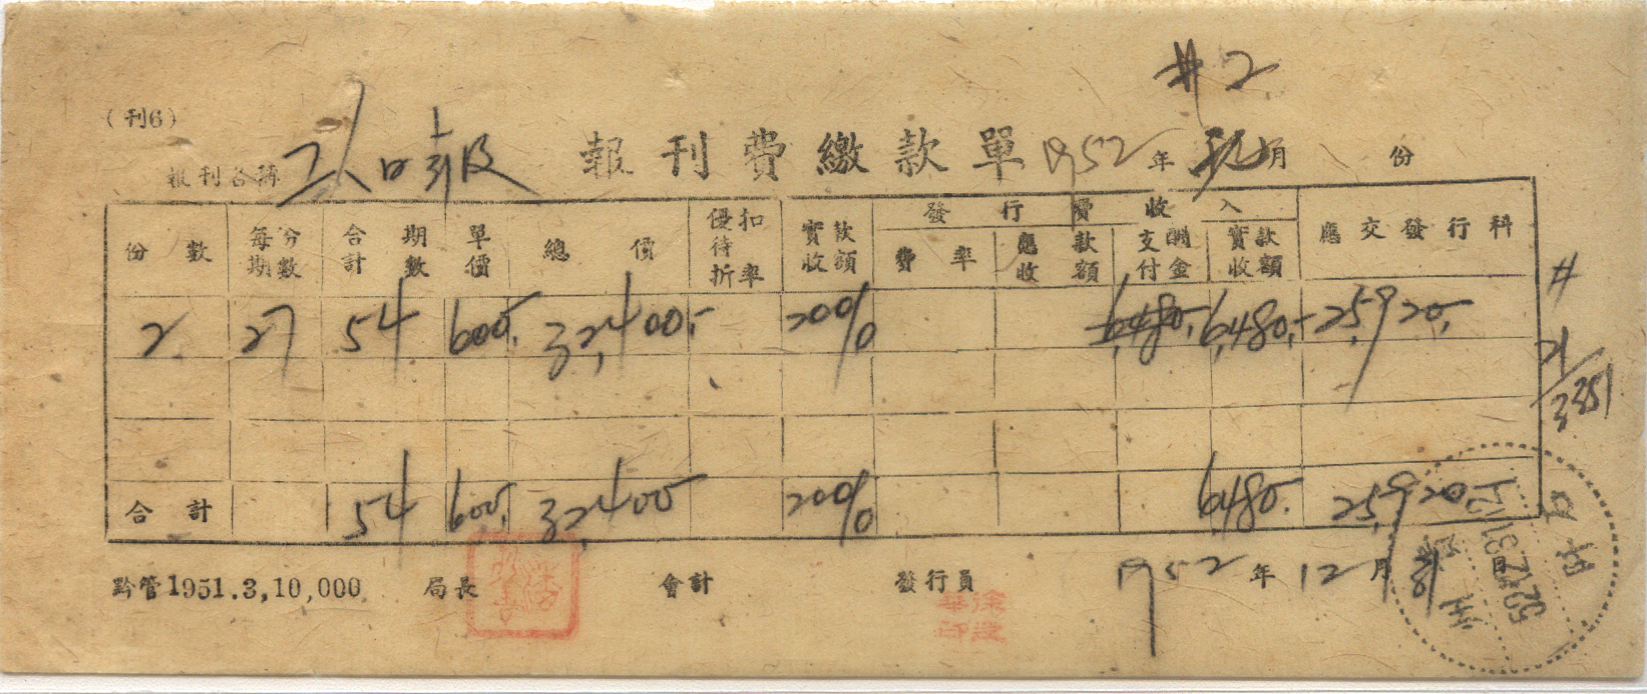 #2
(刊6)
報刊名稱 大口報 報刊費繳款單 1952年 月份
份數 每份期數 合計期數 單價 總價 優待折扣率 實收款額 發行費收入 應交發行科
費率 應收款額 支付酬金 實收款額
2 27 54 600.- 32,400.- 20% 6,480.- 6,480.- 25,920.-
#
21/3351
合計 54 600.- 32,400 20% 6,480.- 25,920
黔管1951.3,10,000 局長 會計 發行員 1952年12月31
徐
華
印
52.12.31